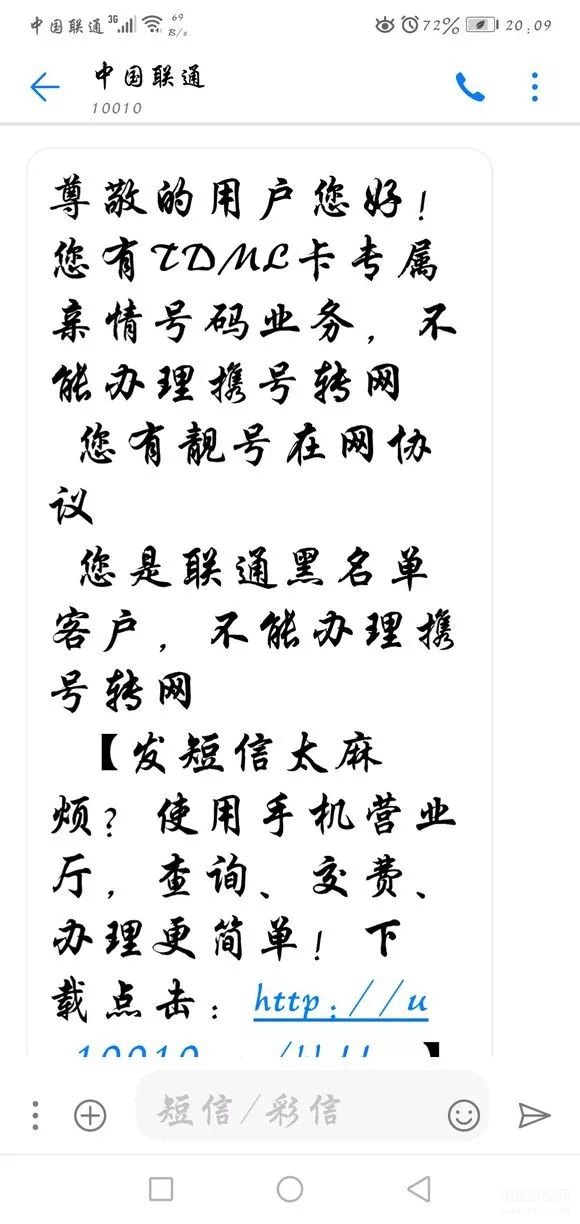 中国联通 3G 69 B/s 72% 20:09
中国联通
10010
尊敬的用户您好!
您有TDML卡专属
亲情号码业务,不
能办理携号转网
您有靓号在网协
议
您是联通黑名单
客户,不能办理携
号转网
【发短信太麻
烦?使用手机营业
厅,查询、交费、
办理更简单!下
载点击:http://u
短信/彩信